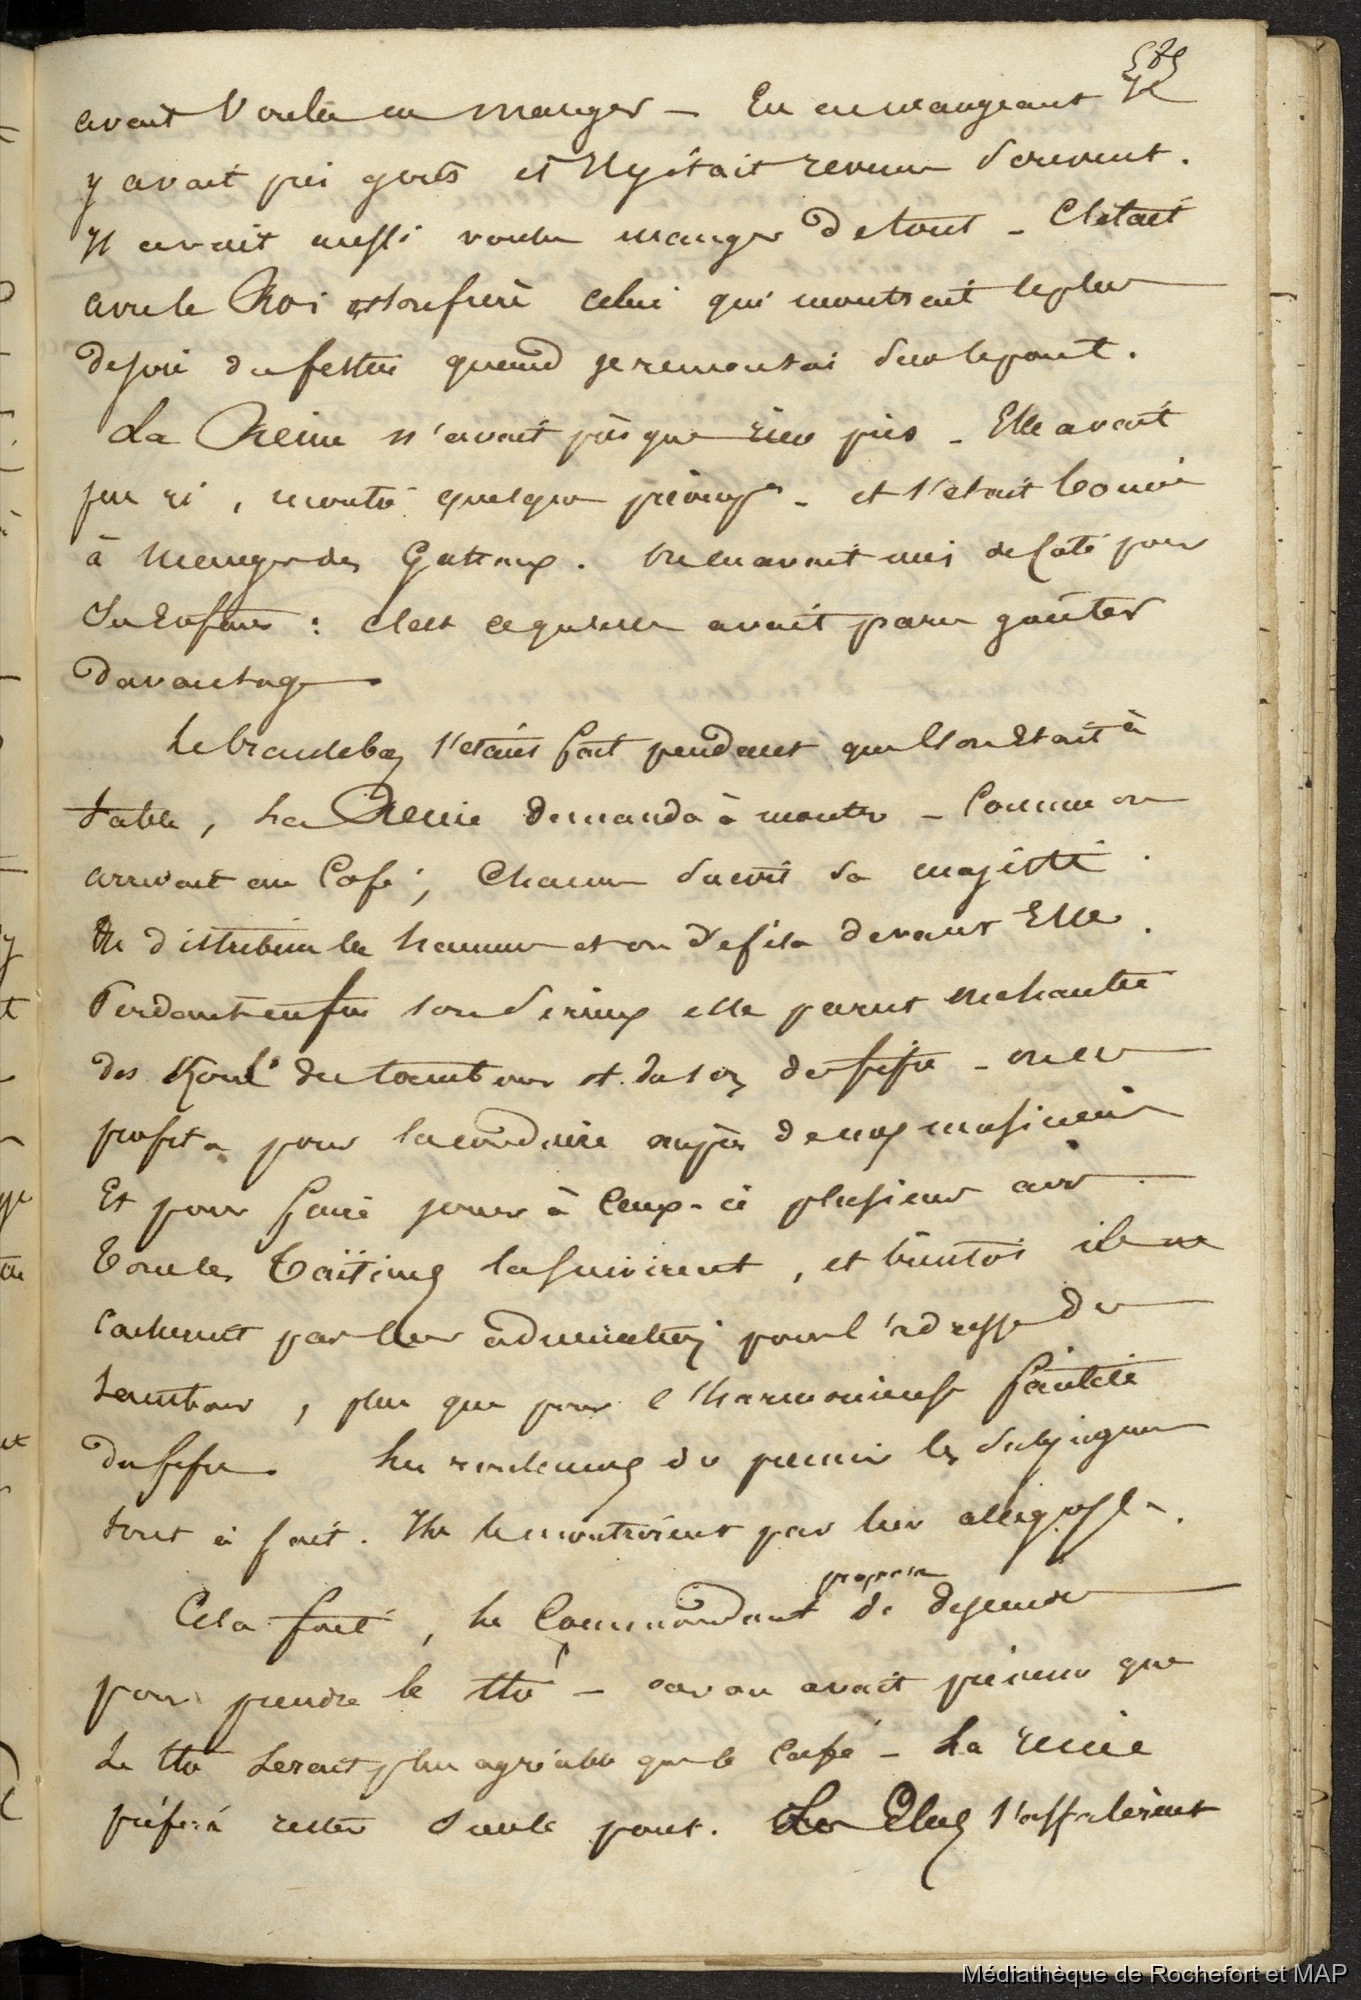 585
avait voulu en manger – En en mangeant Il
y avait pris goût et Il y était revenu souvent.
Il avait aussi voulu manger de tout – C'était
avec le Roi et son frère celui qui montrait le plus
de joie du festin quand je remontai sur le pont.
La Reine n'avait presque rien pris – Elle avait
peu ri, montré quelque – et s'était bornée
à manger des Gateaux. On en avait mis de côté pour
Ses Enfans : c'est ce qu'elle avait paru goûter
davantage.
Le branlebas s'étant fait pendant que l'on Etait à
table, La Reine demanda à monter – Comme on
arrivait au Café, Chacun suivit Sa majesté.
On distribua les hamacs et on défila devant Elle.
Pendant enfin son sérieux elle parut enchantée
des Roul.s du tambour et du son du fifre – on en
profita pour la conduire auprès de nos musiciens
Et pour faire jouer à Ceux-ci plusieurs airs.
Tous les Taïtiens la suivirent, et bientôt ils ne
cachèrent pas leur admiration pour l'adresse du
tambour, plus que pour l'harmonieuse
du fifre. Les roulemens du premier les subjuguèrent
tout à fait. Ils le montrèrent par leur allégresse.
Cela fait, le Commandant proposa de descendre
pour prendre le thé – car on avait prévenu que
Le thé serait plus agréable que le café – La reine
préféra rester sur le pont. Les Chefs s'affalèrent
Médiathèque de Rochefort et MAP